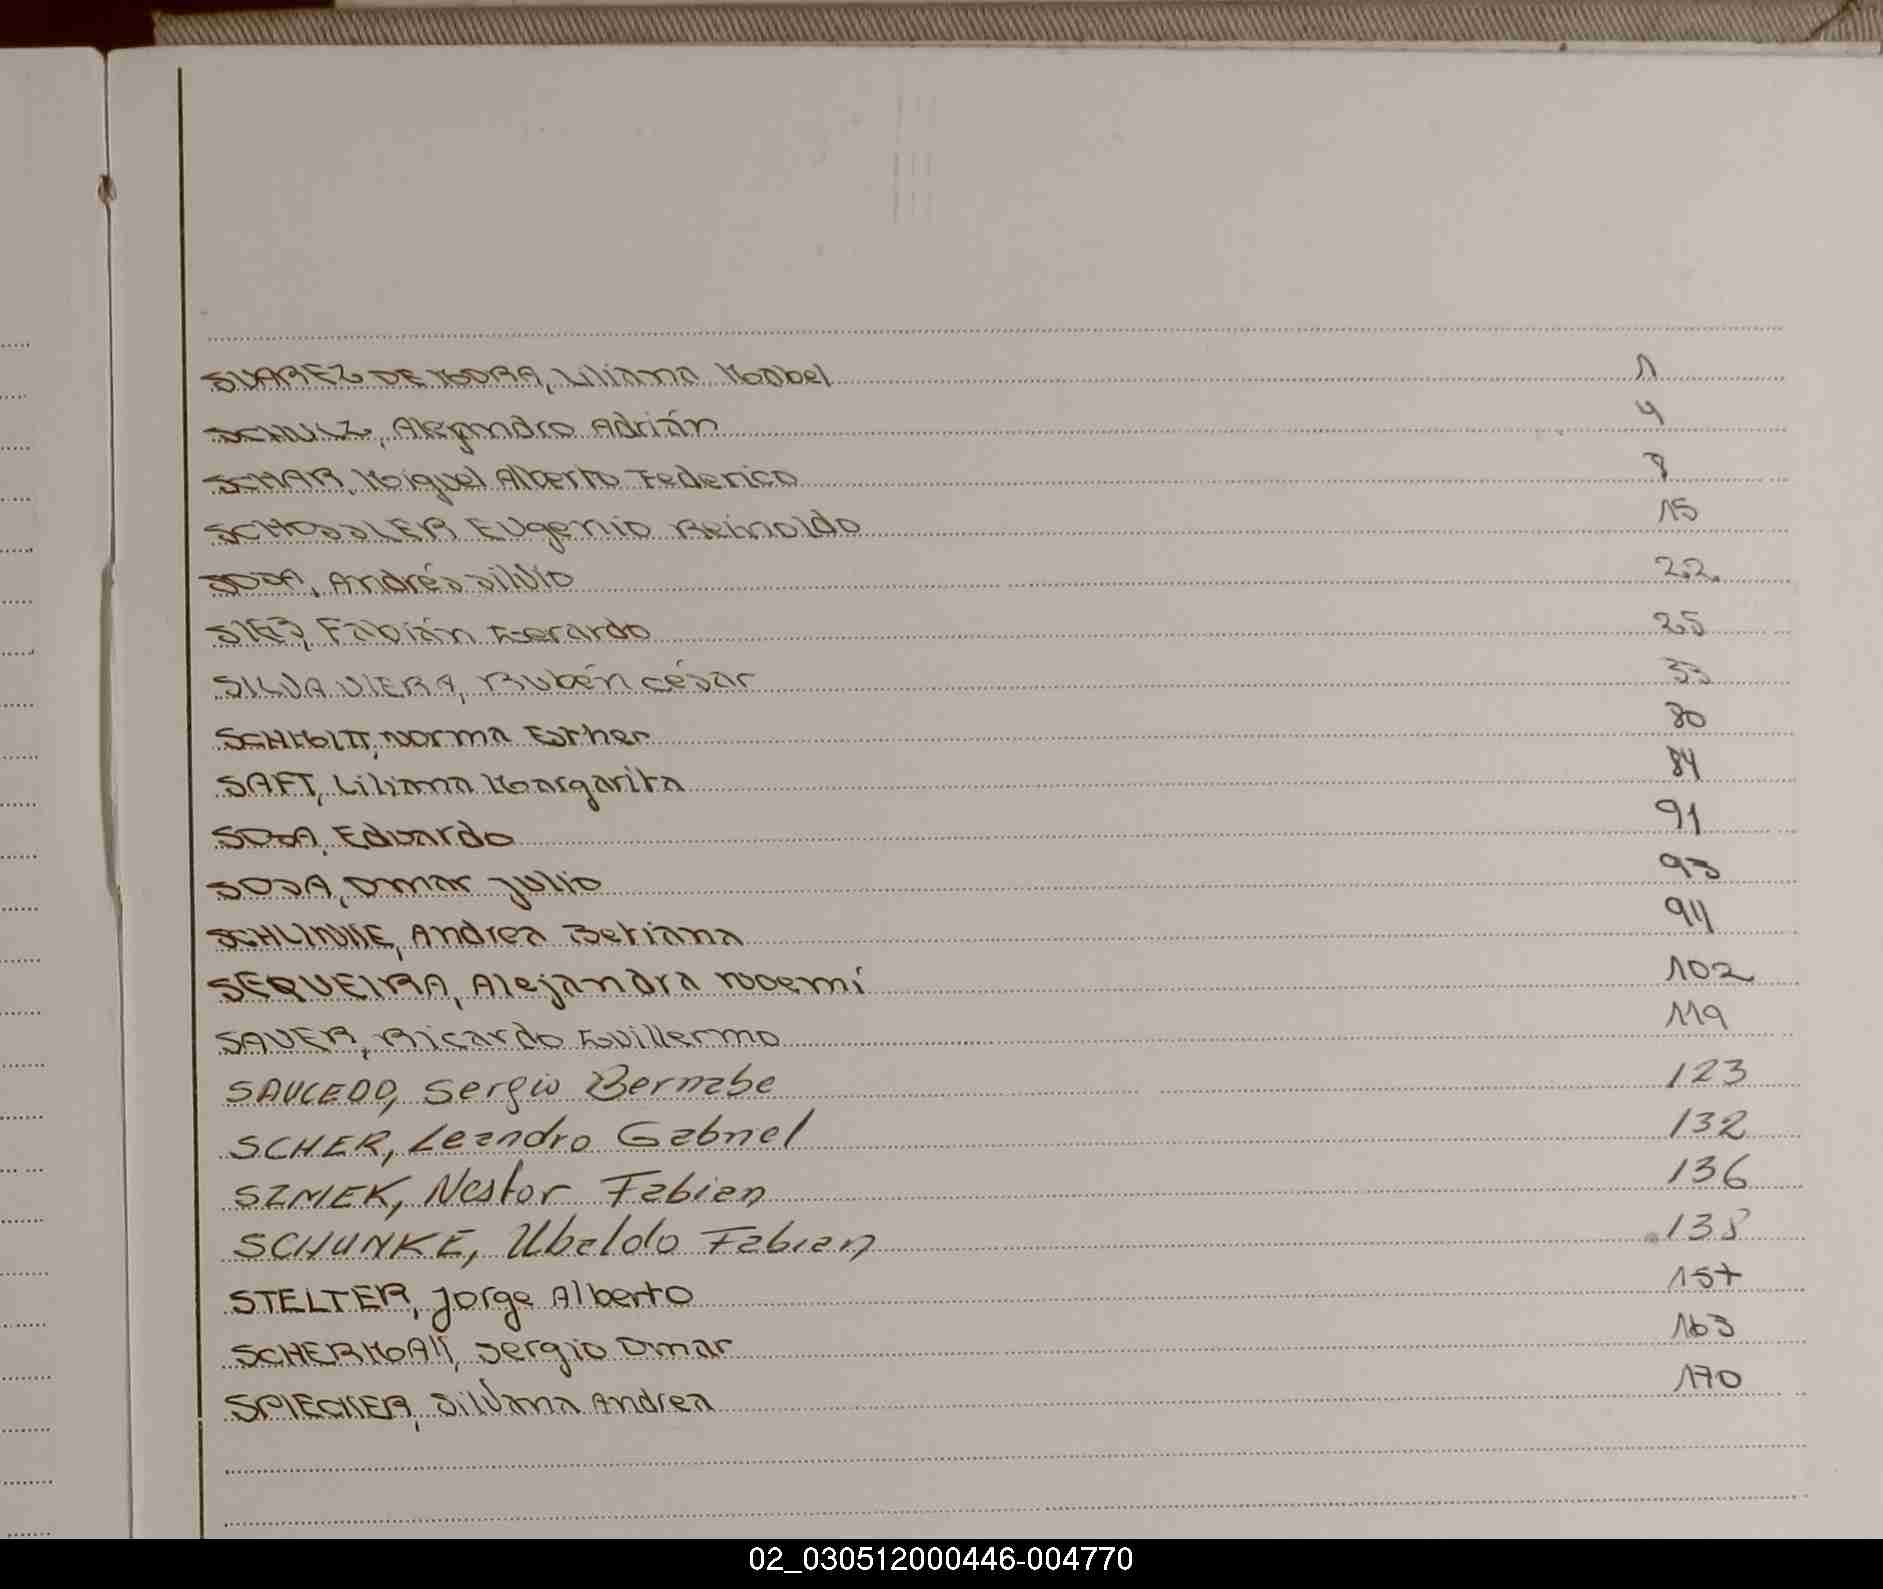 SUAREZ DE MORA, Liliana Mabel 1
SCHULZ, Alejandro Adrián 4
SCHAR, Miguel Alberto Federico 8
SCHOSSLER Eugenio Reinoldo 15
SOSA, Andrés Silvio 22
Fabián Gerardo 25
SILVA VIERA, Rubén César 33
SCHMITT, Norma Esther 80
SAFT, Liliana Margarita 84
SOSA, Eduardo 91
SOSA, Omar Julio 93
SCHLINKE, Andrea Betiana 94
SEQUEIRA, Alejandra Noemí 102
SAUER, Ricardo Guillermo 119
SAUCEDO, Sergio Bernabe 123
SCHER, Leandro Gabriel 132
SZMEK, Nestor Fabian 136
SCHUNKE, Ubaldo Fabian 138
STELTER, Jorge Alberto 157
SCHERMAN, Sergio Omar 163
SPIECKER, Silvana Andrea 170
02_030512000446-004770